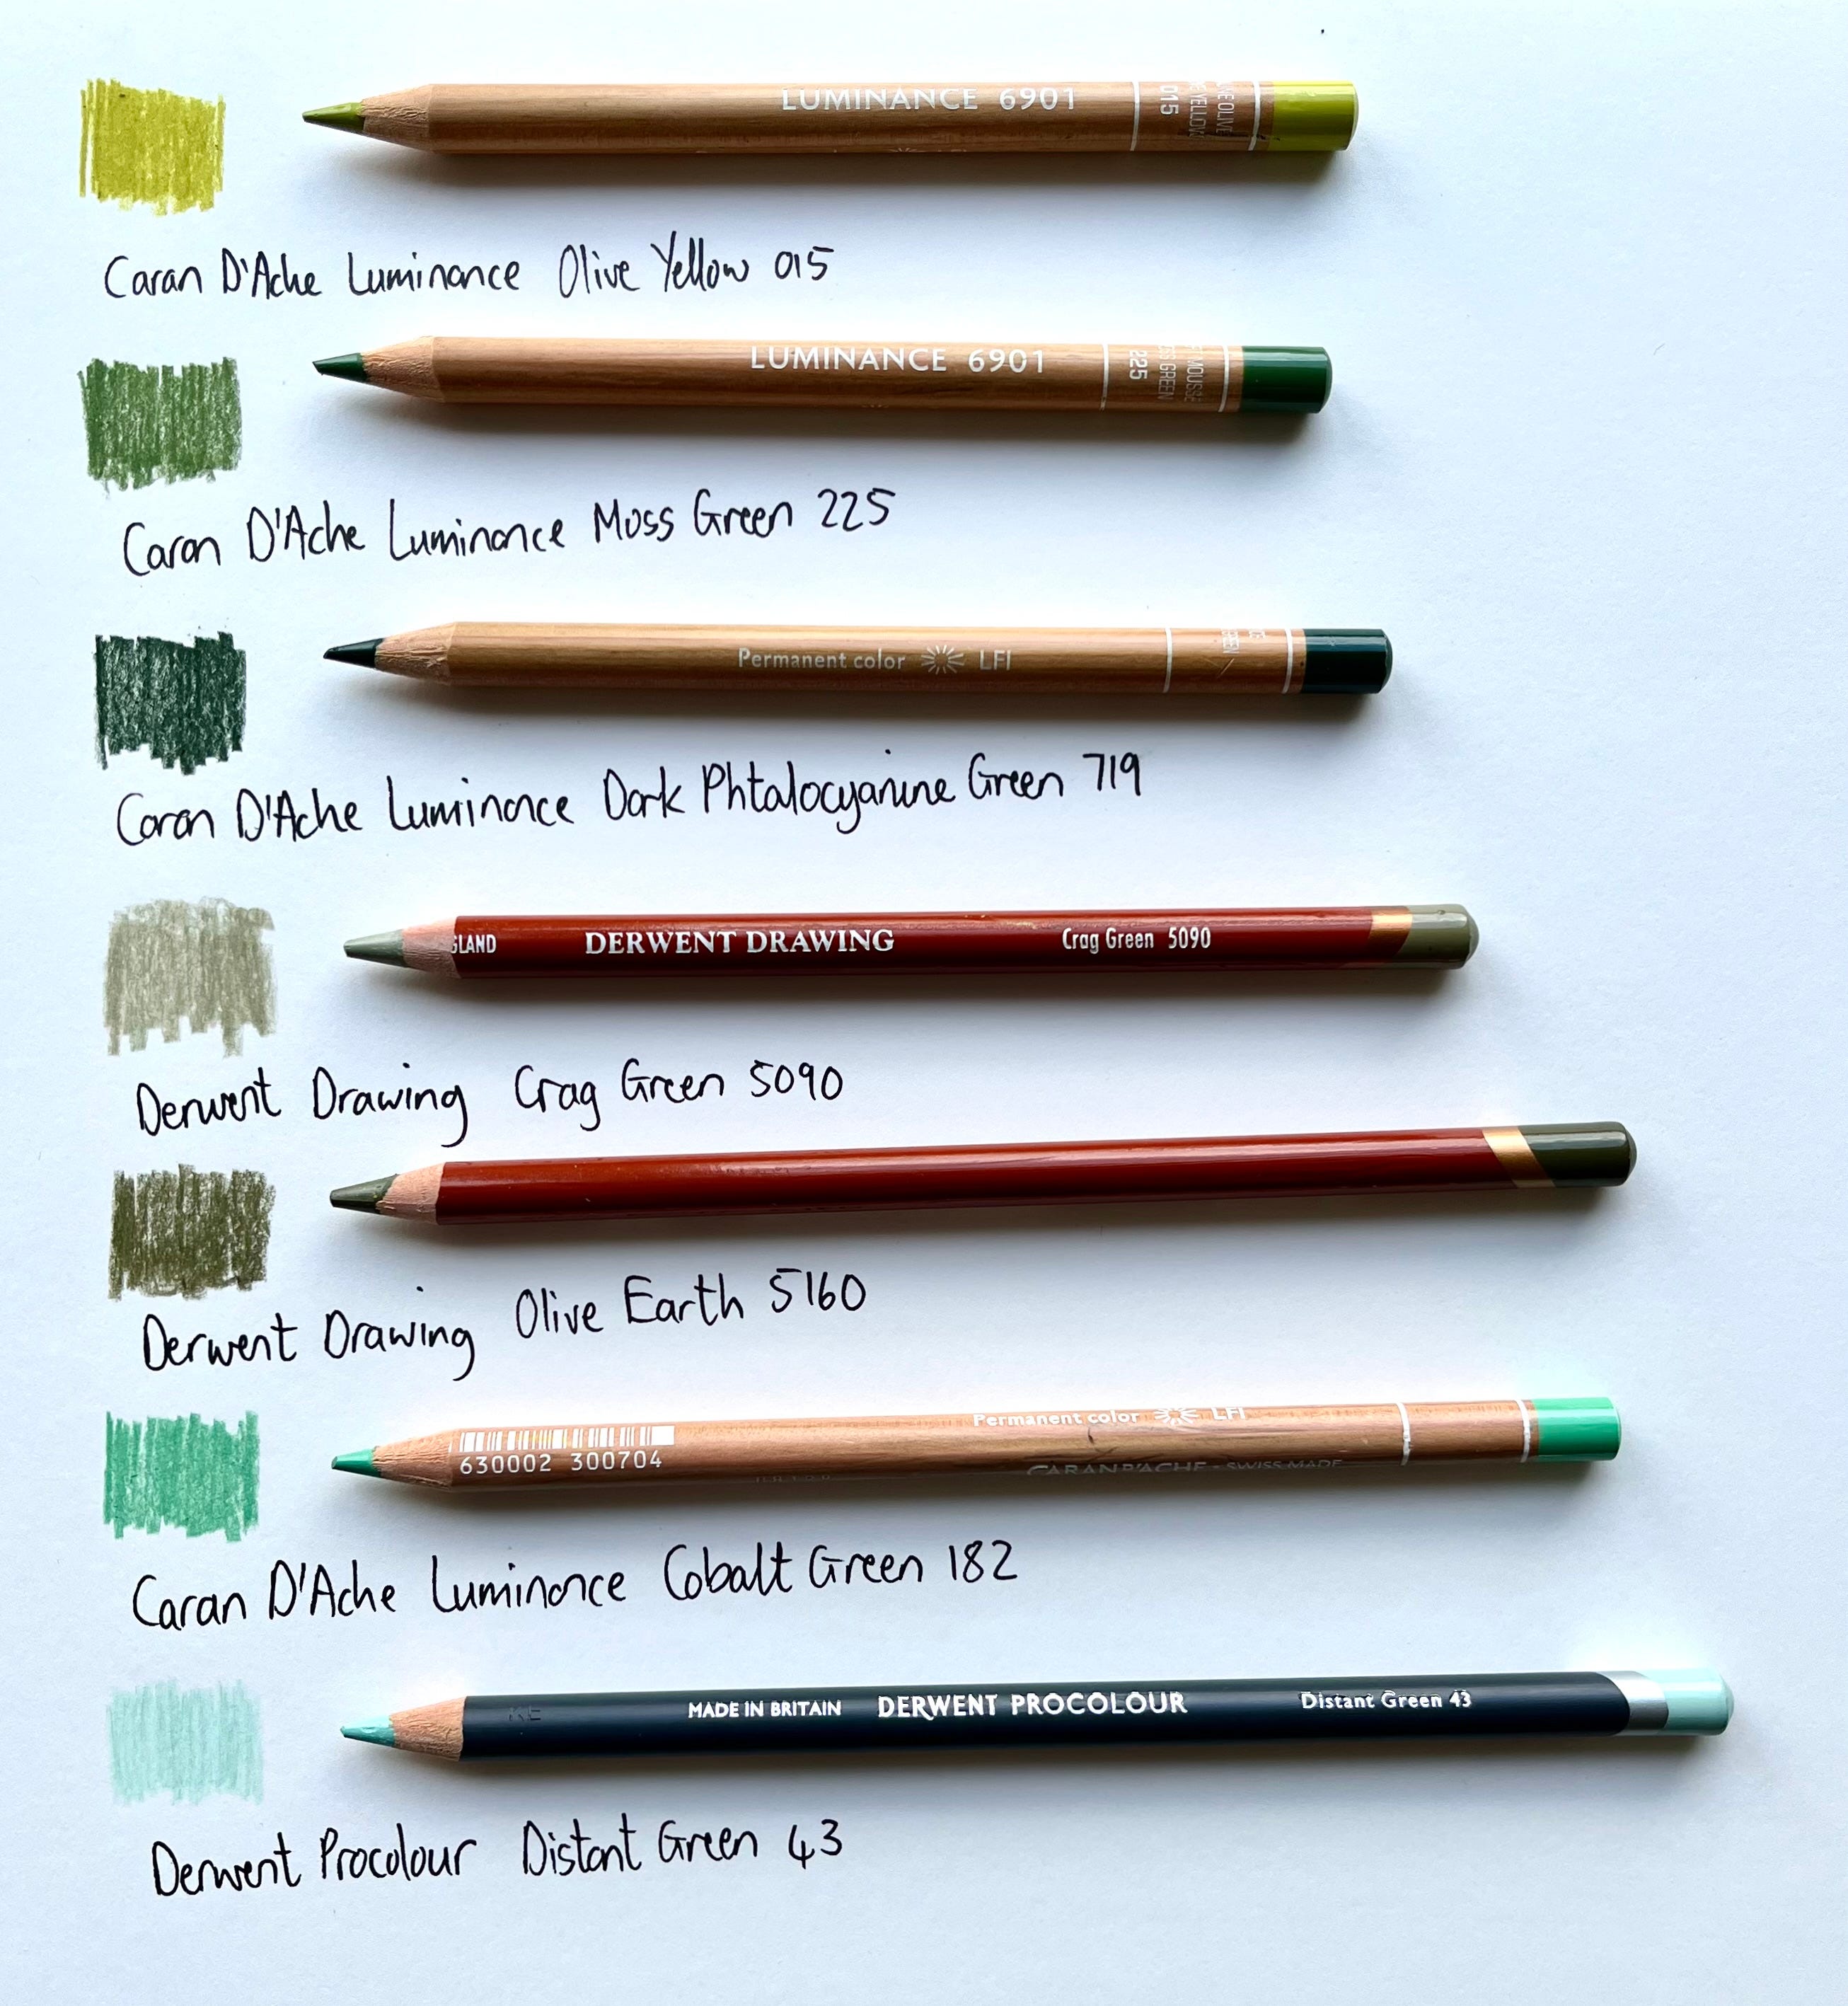 LUMINANCE 6901
015
Caran D'Ache Luminance Olive Yellow 015
LUMINANCE 6901
225
MOUSSE
GREEN
Caran D'Ache Luminance Moss Green 225
Permanent color LFI
Caran D'Ache Luminance Dark Phtalocyanine Green 719
DERWENT DRAWING Crag Green 5090
Derwent Drawing Crag Green 5090
Derwent Drawing Olive Earth 5160
Permanent color LFI
630002 300704
CARAN D'ACHE - SWISS MADE
Caran D'Ache Luminance Cobalt Green 182
MADE IN BRITAIN DERWENT PROCOLOUR Distant Green 43
Derwent Procolour Distant Green 43